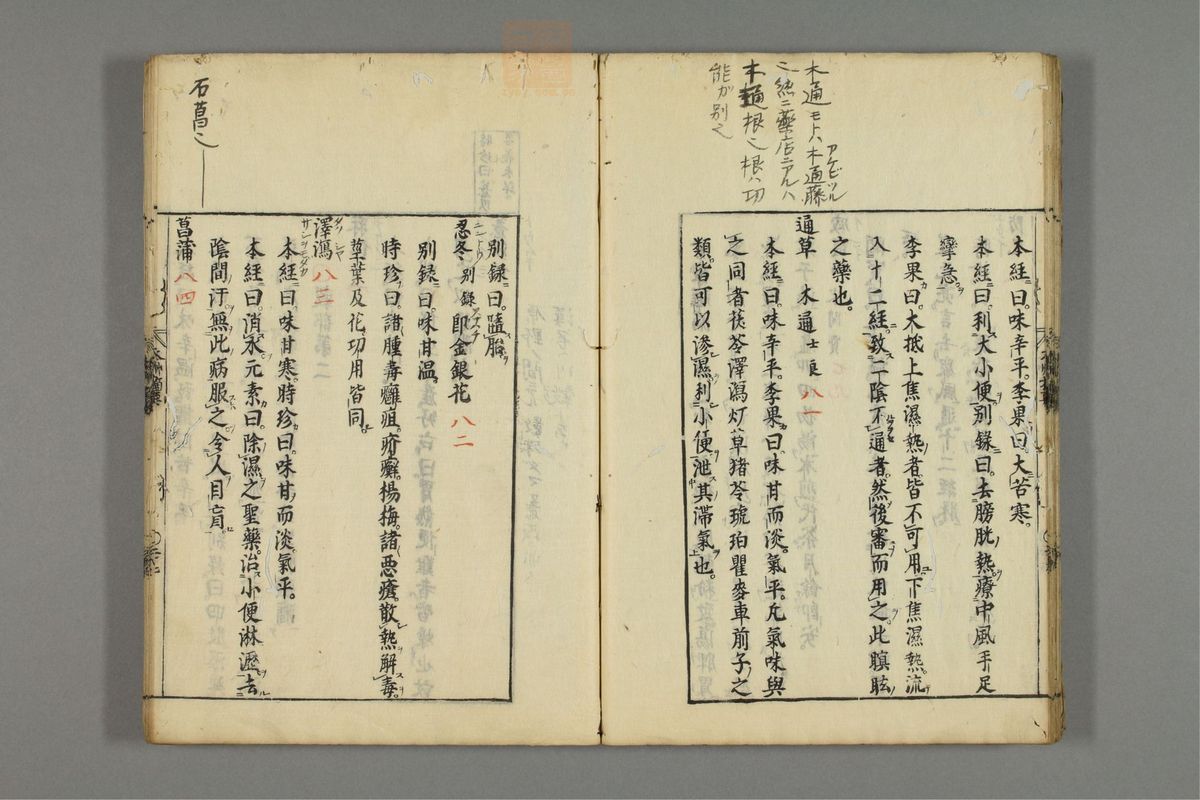 木通モトハ木通藤アケビツル
之總ニ藥店ニアルハ
木通根之根ハ功
能ガ別之
本経曰。味辛平。李果曰大苦寒。
本経曰。利大小便別錄曰。去膀胱熱療中風手足
攣急。
李果曰。大抵上焦濕熱者皆不可用下焦濕熱流
入十二経致二陰不通者。然後審而用之此瞑眩
之藥也。
通草 木通 士良 八一
本経曰。味辛平。李果曰味甘而淡。氣平。凡氣味與
之同者茯苓澤瀉灯草猪苓琥珀瞿麥車前子之
類。皆可以滲濕利小便泄其滞氣也。
石菖之
別録曰。墮胎。
忍冬 別錄 即金銀花 八二
別録曰。味甘温。
時珍曰諸腫毒癰疽疥癬。楊梅。諸惡瘡散熱解毒。
莖葉及花功用皆同。
澤瀉 八三
本経曰味甘寒。時珍曰。味甘而淡。氣平。
本経曰。消水元素曰。除濕之聖藥。治小便淋瀝去
陰間汗。無此病服之令人目盲。
菖蒲 八四